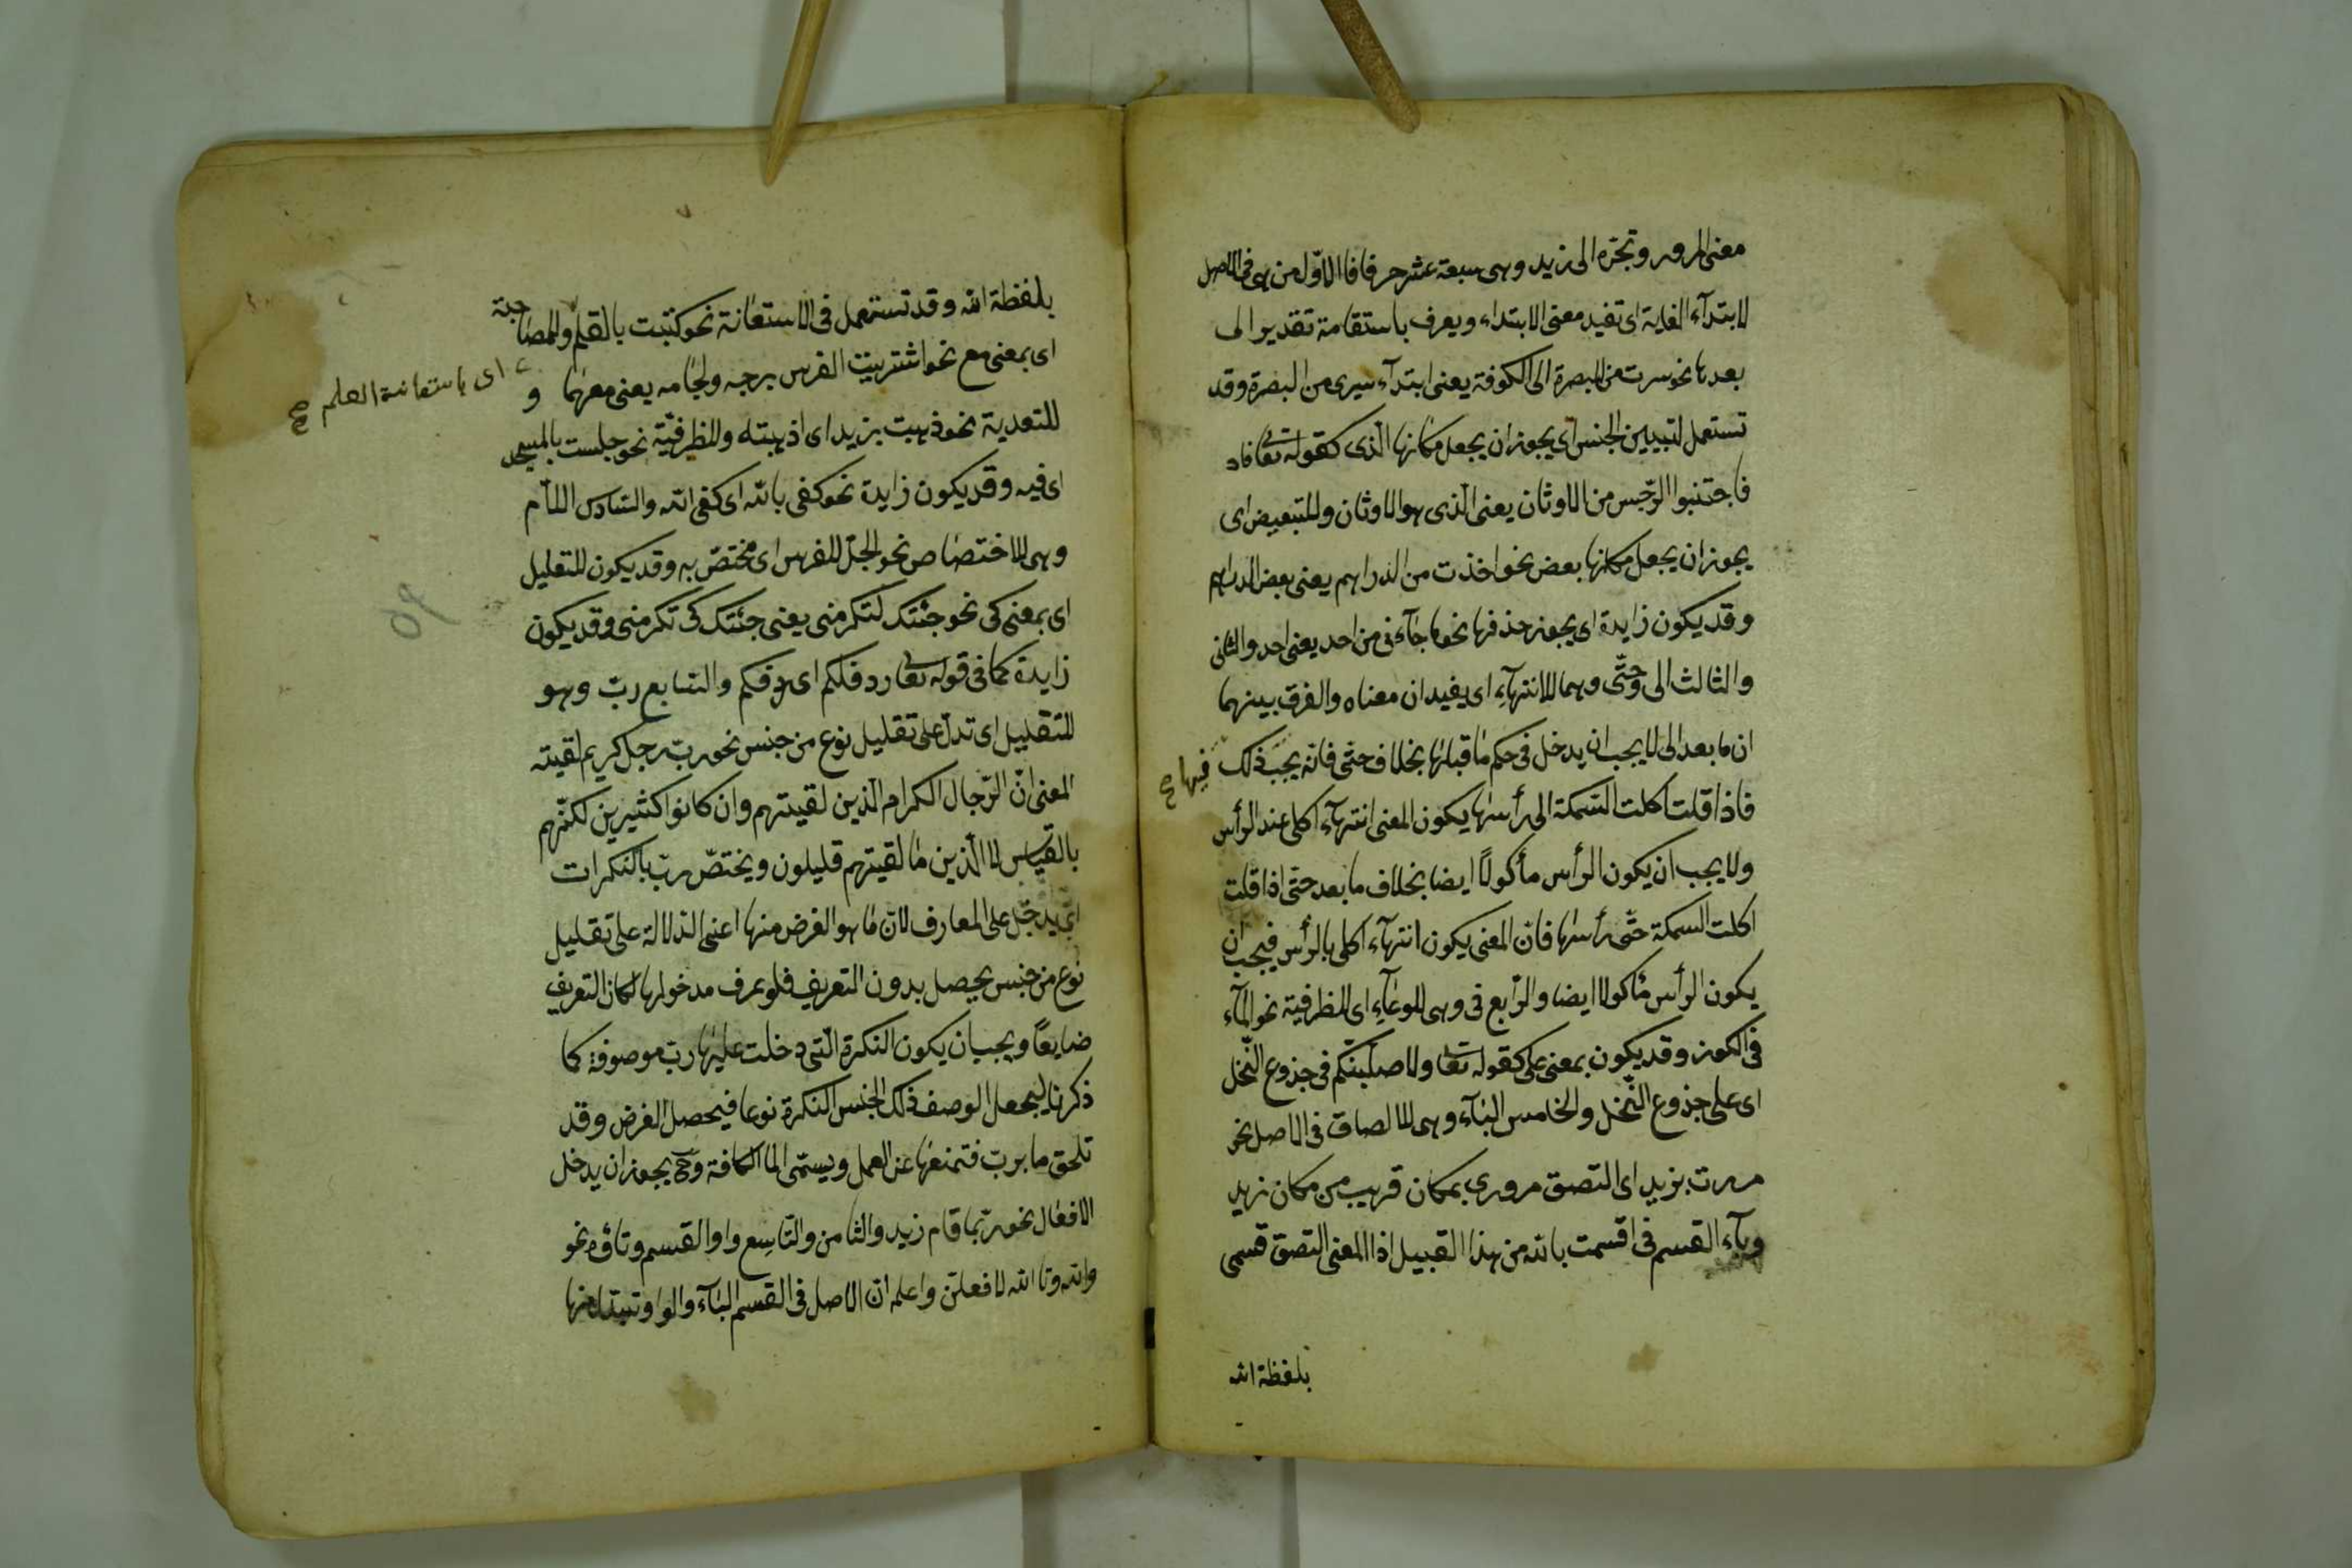 معنى المرور وتجرّه الى زيد وهى سبعة عشر حرفا فالاوّل من هى فى الاصل
لابتدآء الغاية اى تفيد معنى الابتداء ويعرف باستقامة تقدير الى
بعدها نحو سرت من البصرة الى الكوفة يعنى ابتدآء سيرى من البصرة وقد
تستعمل لتبيين الجنس اى يجوز ان يجعل مكانها الّذى كقوله تعا
فاجتنبوا الرّجس من الاوثان يعنى الّذى هو الاوثان وللتبعيض اى
يجوز ان يجعل مكانها بعض نحو اخذت من الدراهم يعنى بعض الدراهم
وقد يكون زايدة اى يجوز حذفها نحو ما جآءنى من احد يعنى احد والثانى
والثالث الى وحتّى وهما للانتهآء اى يفيدان معناه والفرق بينهما
ان ما بعد الى لا يجب ان يدخل فى حكم ما قبلها بخلاف حتى فانه يجب ذلك
فيها صح
فاذا قلت اكلت السّمكة الى رأسها يكون المعنى انتهآء اكلى عند الرأس
ولا يجب ان يكون الرأس مأكولاً ايضا بخلاف ما بعد حتى اذا قلت
اكلت السمكة حتّى رأسها فان المعنى يكون انتهآء اكلى بالرأس فيجب ان
يكون الرأس مأكولا ايضا والرّابع فى وهى للوعآء اى للظرفية نحو المآء
فى الكوز وقد يكون بمعنى على كقوله تعا ولاصلّبنّكم فى جذوع النّخل
اى على جذوع النّخل والخامس البآء وهى للالصاق فى الاصل نحو
مررت بزيد اى التصق مرورى بمكان قريب من مكان زيد
وبآء القسم فى اقسمت بالله من هذا القبيل اذ المعنى التصق قسمى
بلفظة الله
بلفظة الله وقد تستعمل فى الاستعانة نحو كتبت بالقلم وللمصاحبة
اى باستعانة القلم صح
اى بمعنى مع نحو اشتريت الفرس بسرجه ولجامه يعنى معهما و
للتعدية نحو ذهبت بزيد اى اذهبته وللظرفيّة نحو جلست بالمسجد
اى فيه وقد يكون زايدة نحو كفى بالله اى كفى الله والسّادس اللّام
وهى للاختصاص نحو الجلّ للفرس اى مختصّ به وقد يكون للتعليل
اى بمعنى كى نحو جئتك لتكرمنى يعنى جئتك كى تكرمنى وقد يكون
زايدة كما فى قوله تعا ردف لكم اى ردفكم والسّابع ربّ وهو
للتقليل اى تدلّ على تقليل نوع من جنس نحو ربّ رجل كريم لقيته
المعنى انّ الرّجال الكرام الّذين لقيتهم وان كانوا كثيرين لكنّهم
بالقياس الى الّذين ما لقيتهم قليلون ويختصّ ربّ بالنكرات
اى لا يدخل على المعارف لان ما هو الغرض منها اعنى الدّلالة على تقليل
نوع من جنس يحصل بدون التعريف فلو عرف مدخولها لكان التعريف
ضايعاً ويجب ان يكون النكرة الّتى دخلت عليها ربّ موصوفة كما
ذكرنا ليجعل الوصف ذلك الجنس النكرة نوعا فيحصل الغرض وقد
تلحق ما بربّ فتمنعها عن العمل ويسمّى الما الكافة وح يجوز ان يدخل
الافعال نحو ربّما قام زيد والثامن والتّاسع واو القسم وتاؤه نحو
والله وتالله لافعلنّ واعلم ان الاصل فى القسم البآء والواو تبدل منها